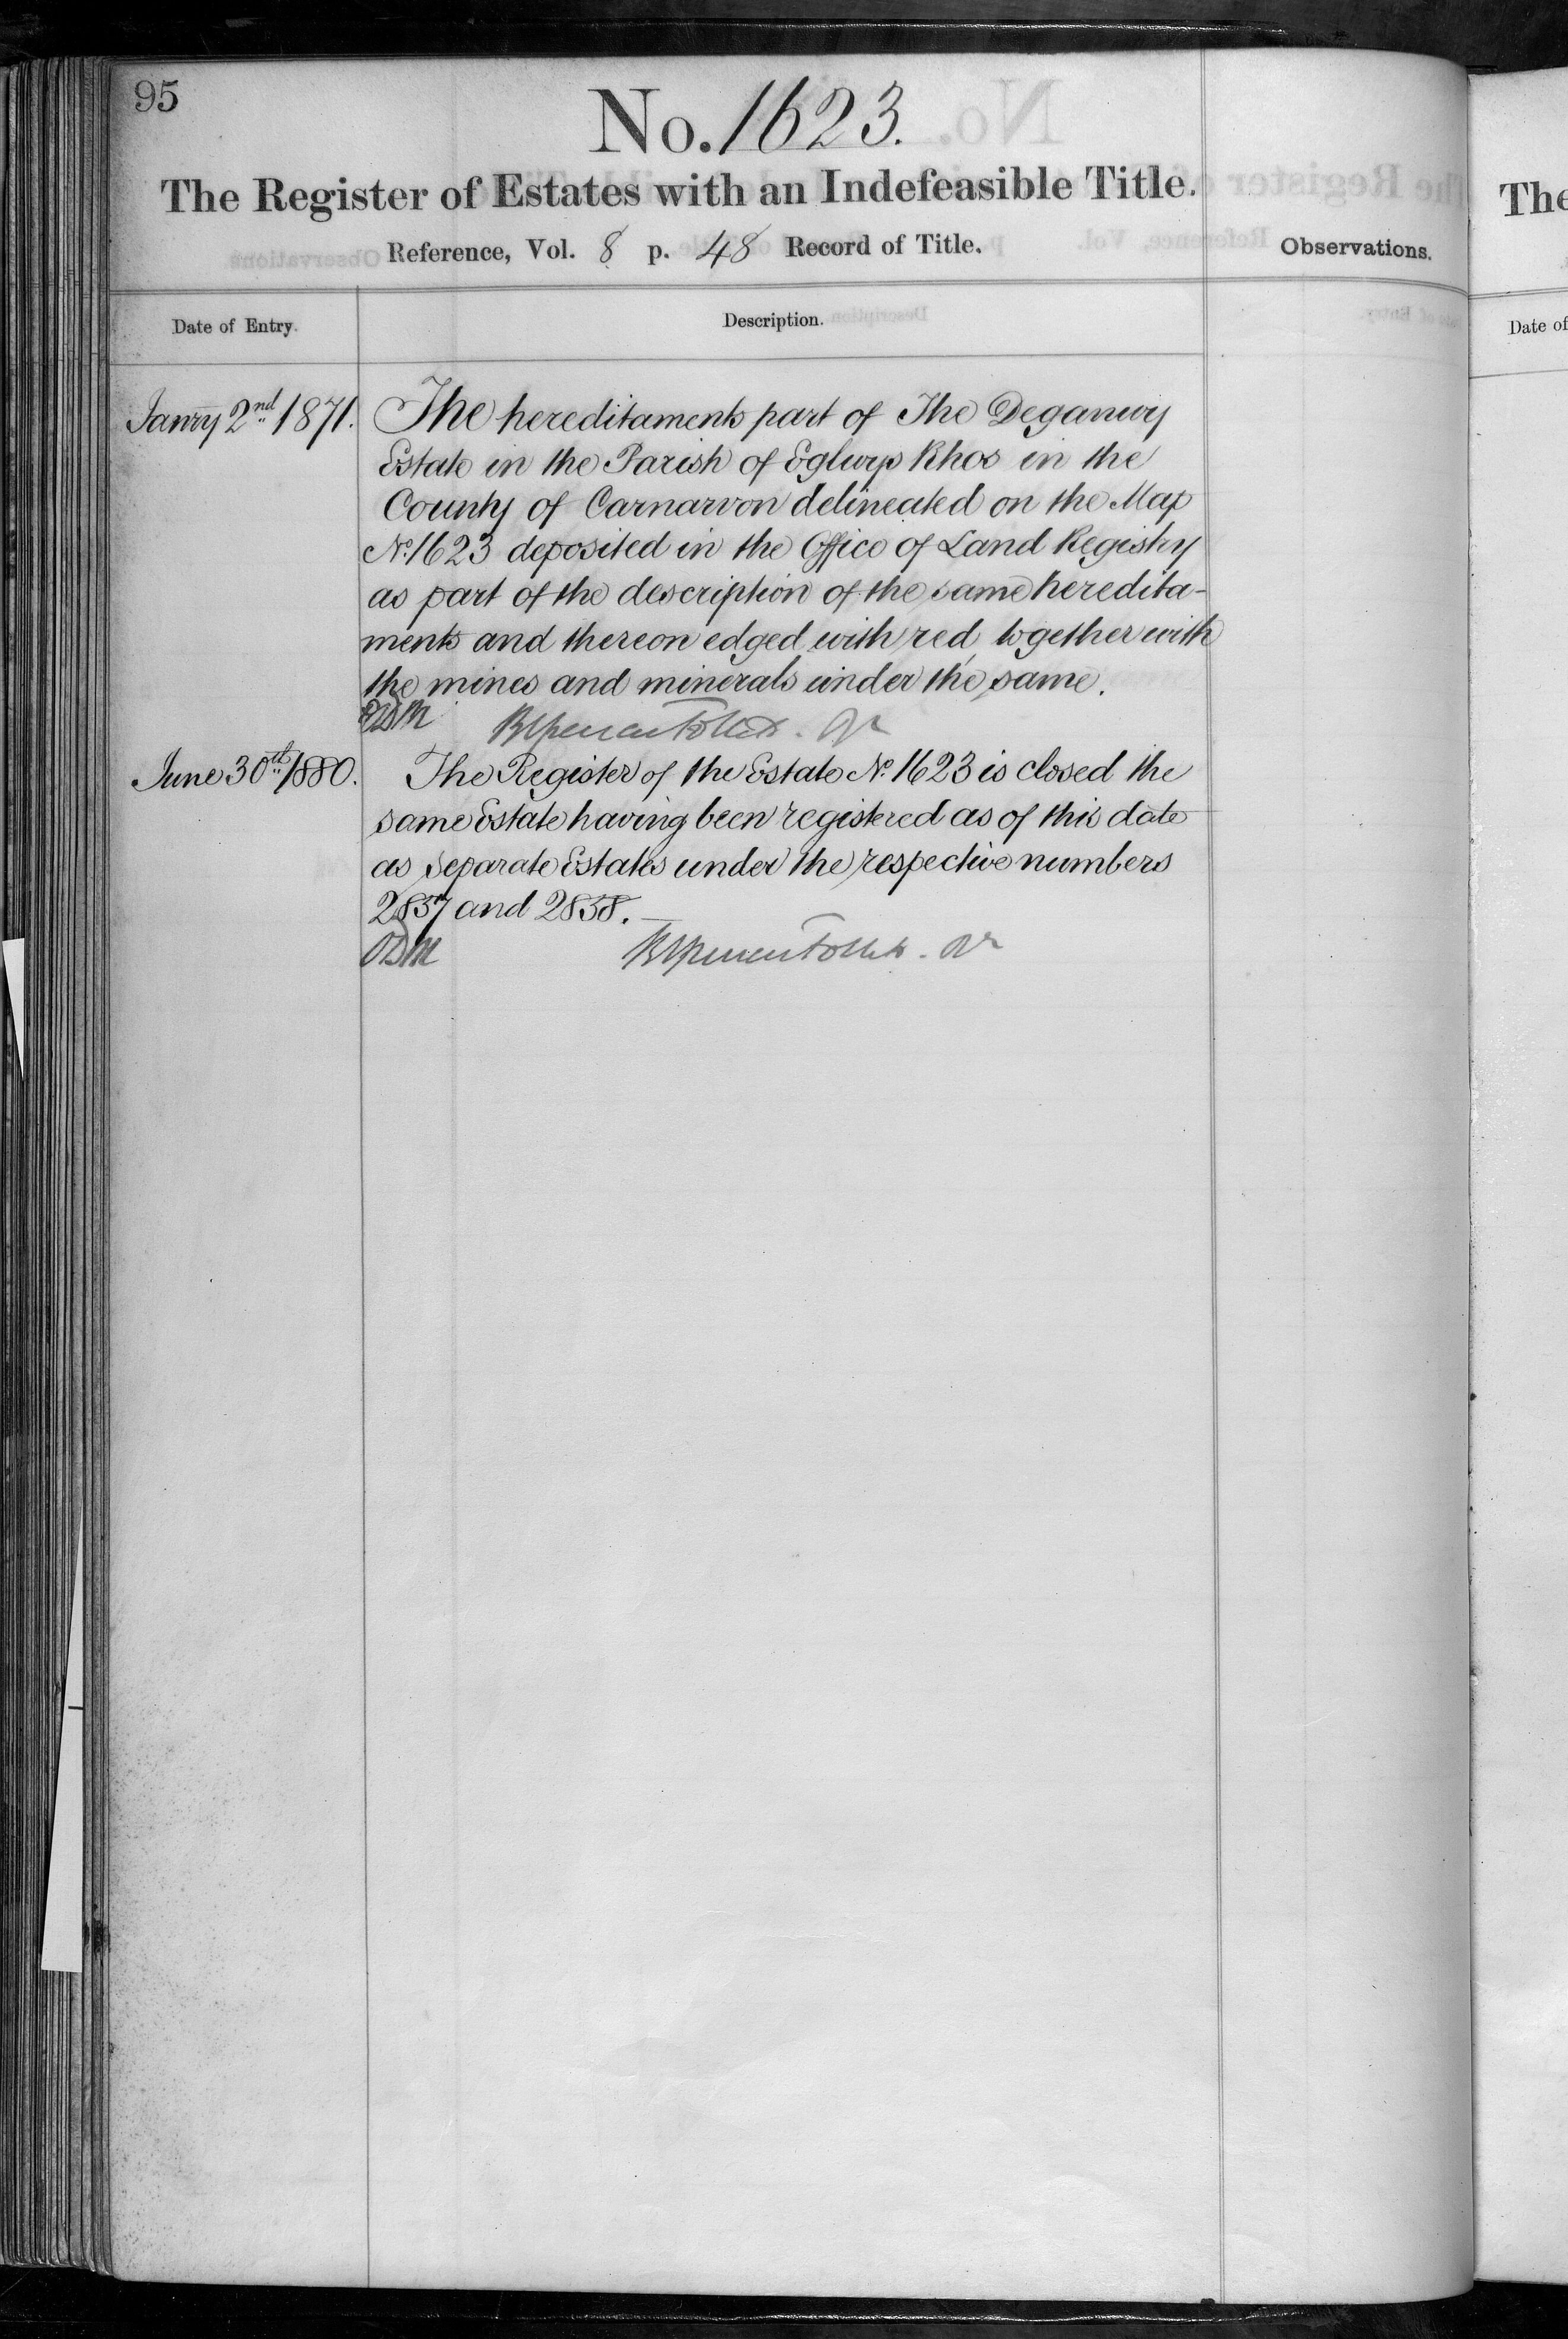 95
No. 1623.
The Register of Estates with an Indefeasible Title.
Reference, Vol. 8 p. 48 Record of Title.
Observations.
Date of Entry.
Description.
Janry 2nd 1871.
The hereditaments part of The Deganwy
Estate in the Parish of Eglwys Rhos in the
County of Carnarvon delineated on the Map
No. 1623 deposited in the Office of Land Registry
as part of the description of the same heredita-
ments and thereon edged with red, together with
the mines and minerals under the same.
June 30th 1880.
The Register of the Estate No. 1623 is closed the
same Estate having been registered as of this date
as separate Estates under the respective numbers
2837 and 2838.
The
Date of